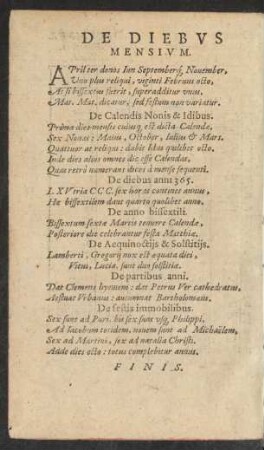 DE DIEBVS
MENSIVM.
APrilter denis Iun Septemberq́, Nouember,
Vno plus reliqui, viginti Februus octo,
At si bissextus fuerit, superadditur vnus.
Mat. Mat. dicatur, sed festum non variatur.
De Calendis Nonis & Idibus.
Prima dies mensis cuiusq́ est dicta Calendæ,
Sex Nonas: Maius, October, Iulius & Mars,
Quatuor at reliqui: dabit Idus quilibet octo,
Inde dies alios omnes dic esse Calendas,
Quas retro numerans dices à mense sequenti.
De diebus anni 365.
L X V tria C C C. sex horas continet annus,
He bissextilem dant quarto quolibet anno.
De anno bissextili.
Bissextum sextæ Martis tenuere Calendæ,
Posteriore die celebrantur festa Matthiæ.
De Aequinoctijs & Solstitijs.
Lamberti, Gregorij nox est æquata diei,
Vitus, Lucia, sunt duo solstitia.
De partibus anni.
Dat Clemens hyemem: dat Petrus Ver cathedratus,
Aestuat Vrbanus: autumnat Bartholomæus.
De festis immobilibus.
Sex sunt ad Puri. bis sex sunt vsq́ Philippi.
Ad Iacobum totidem, nouem sunt ad Michaëlem,
Sex ad Martini, sex ad natalia Christi.
Adde dies octo: totus complebitur annus.
F I N I S.